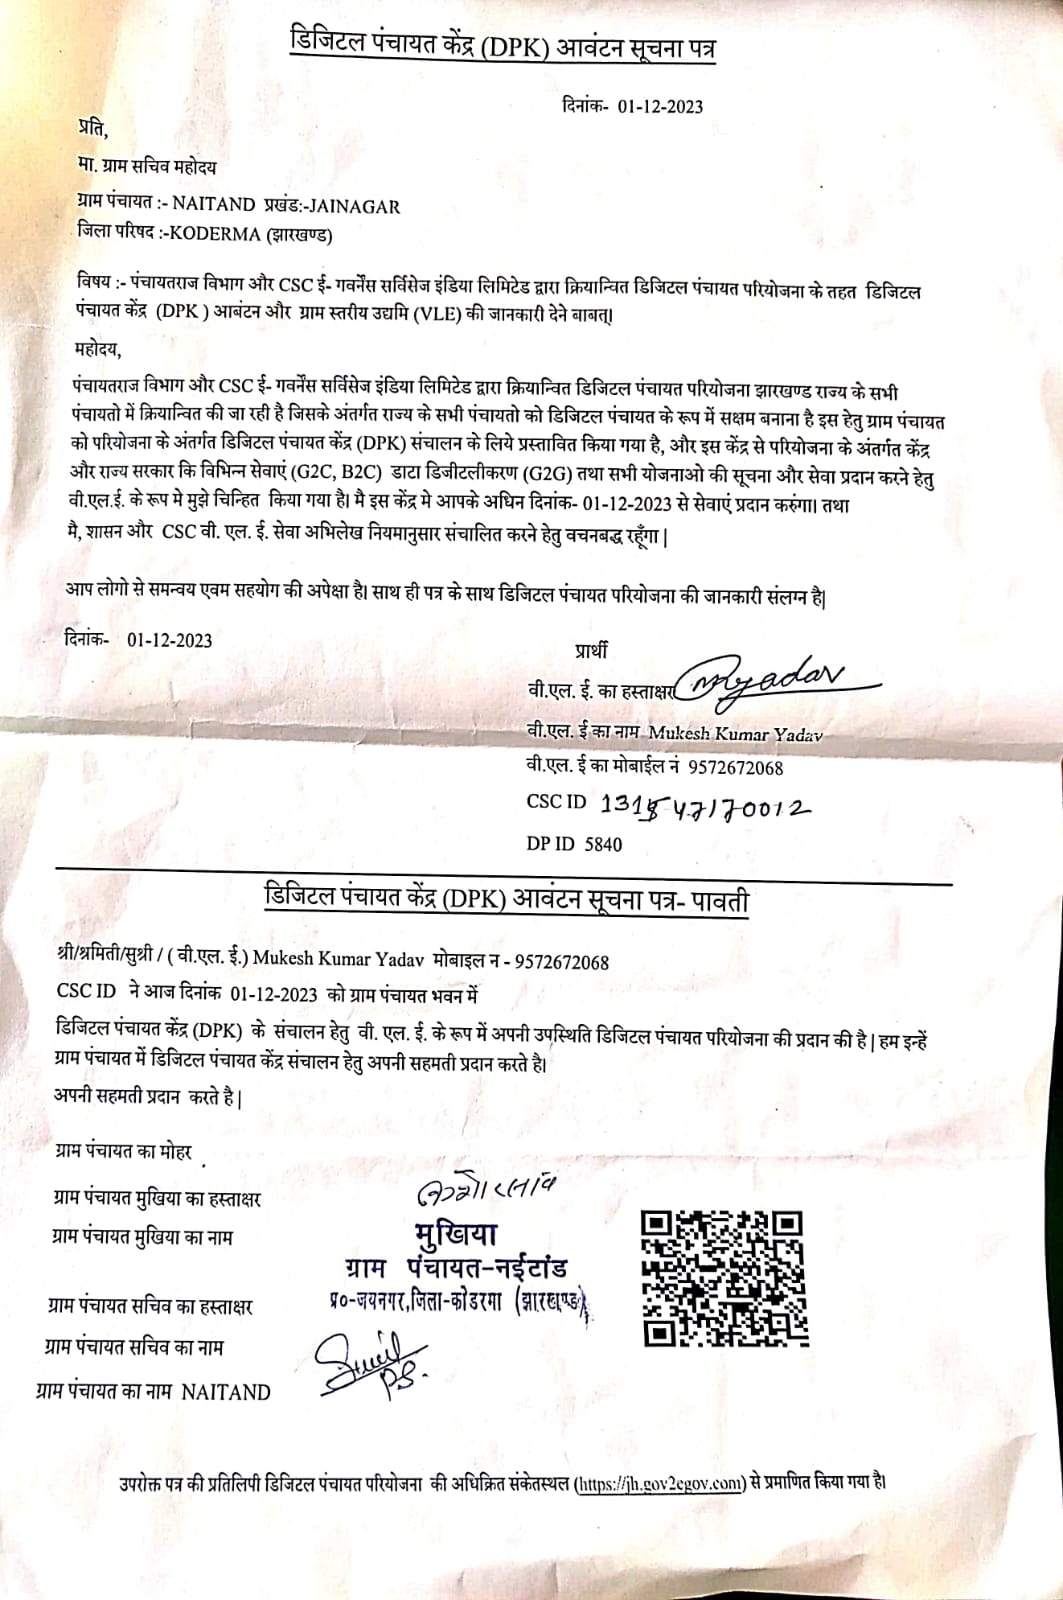 डिजिटल पंचायत केंद्र (DPK) आवंटन सूचना पत्र
दिनांक- 01-12-2023
प्रति,
मा. ग्राम सचिव महोदय
ग्राम पंचायत :- NAITAND प्रखंड:-JAINAGAR
जिला परिषद :-KODERMA (झारखण्ड)
विषय :- पंचायतराज विभाग और CSC ई- गवर्नेंस सर्विसेज इंडिया लिमिटेड द्वारा क्रियान्वित डिजिटल पंचायत परियोजना के तहत डिजिटल
पंचायत केंद्र (DPK ) आबंटन और ग्राम स्तरीय उद्यमि (VLE) की जानकारी देने बाबत्।
महोदय,
पंचायतराज विभाग और CSC ई- गवर्नेंस सर्विसेज इंडिया लिमिटेड द्वारा क्रियान्वित डिजिटल पंचायत परियोजना झारखण्ड राज्य के सभी
पंचायतो में क्रियान्वित की जा रही है जिसके अंतर्गत राज्य के सभी पंचायतो को डिजिटल पंचायत के रूप में सक्षम बनाना है इस हेतु ग्राम पंचायत
को परियोजना के अंतर्गत डिजिटल पंचायत केंद्र (DPK) संचालन के लिये प्रस्तावित किया गया है, और इस केंद्र से परियोजना के अंतर्गत केंद्र
और राज्य सरकार कि विभिन्न सेवाएं (G2C, B2C) डाटा डिजीटलीकरण (G2G) तथा सभी योजनाओ की सूचना और सेवा प्रदान करने हेतु
वी.एल.ई. के रूप मे मुझे चिन्हित किया गया है। मै इस केंद्र मे आपके अधिन दिनांक- 01-12-2023 से सेवाएं प्रदान करुंगा। तथा
मै, शासन और CSC वी. एल. ई. सेवा अभिलेख नियमानुसार संचालित करने हेतु वचनबद्ध रहूँगा |
आप लोगो से समन्वय एवम सहयोग की अपेक्षा है। साथ ही पत्र के साथ डिजिटल पंचायत परियोजना की जानकारी संलग्न है|
दिनांक- 01-12-2023
प्रार्थी
वी.एल. ई. का हस्ताक्षर
वी.एल. ई का नाम Mukesh Kumar Yadav
वी.एल. ई का मोबाईल नं 9572672068
CSC ID
DP ID 5840
डिजिटल पंचायत केंद्र (DPK) आवंटन सूचना पत्र- पावती
श्री/श्रमिती/सुश्री / ( वी.एल. ई.) Mukesh Kumar Yadav मोबाइल न - 9572672068
CSC ID ने आज दिनांक 01-12-2023 को ग्राम पंचायत भवन में
डिजिटल पंचायत केंद्र (DPK) के संचालन हेतु वी. एल. ई. के रूप में अपनी उपस्थिति डिजिटल पंचायत परियोजना की प्रदान की है | हम इन्हें
ग्राम पंचायत में डिजिटल पंचायत केंद्र संचालन हेतु अपनी सहमती प्रदान करते है।
अपनी सहमती प्रदान करते है |
ग्राम पंचायत का मोहर
ग्राम पंचायत मुखिया का हस्ताक्षर
ग्राम पंचायत मुखिया का नाम
मुखिया
ग्राम पंचायत-नईटांड
प्र०-जयनगर,जिला-कोडरमा (झारखण्ड)
ग्राम पंचायत सचिव का हस्ताक्षर
ग्राम पंचायत सचिव का नाम
ग्राम पंचायत का नाम NAITAND
उपरोक्त पत्र की प्रतिलिपी डिजिटल पंचायत परियोजना की अधिक्रित संकेतस्थल (https://jh.gov2egov.com) से प्रमाणित किया गया है।